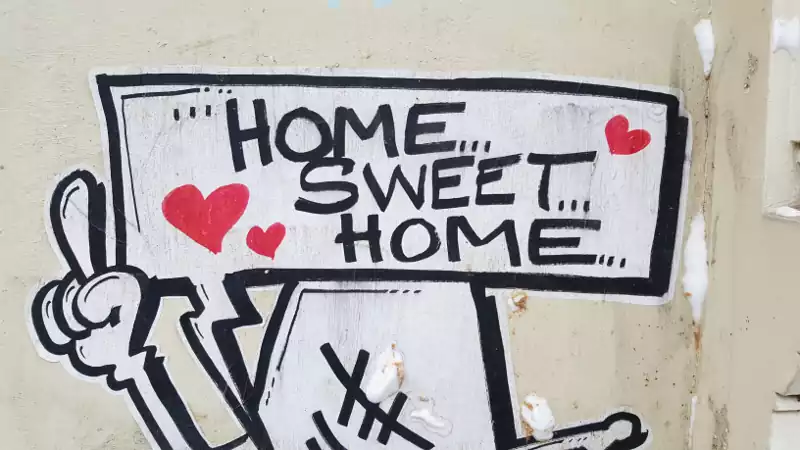 HOME...
SWEET...
HOME...